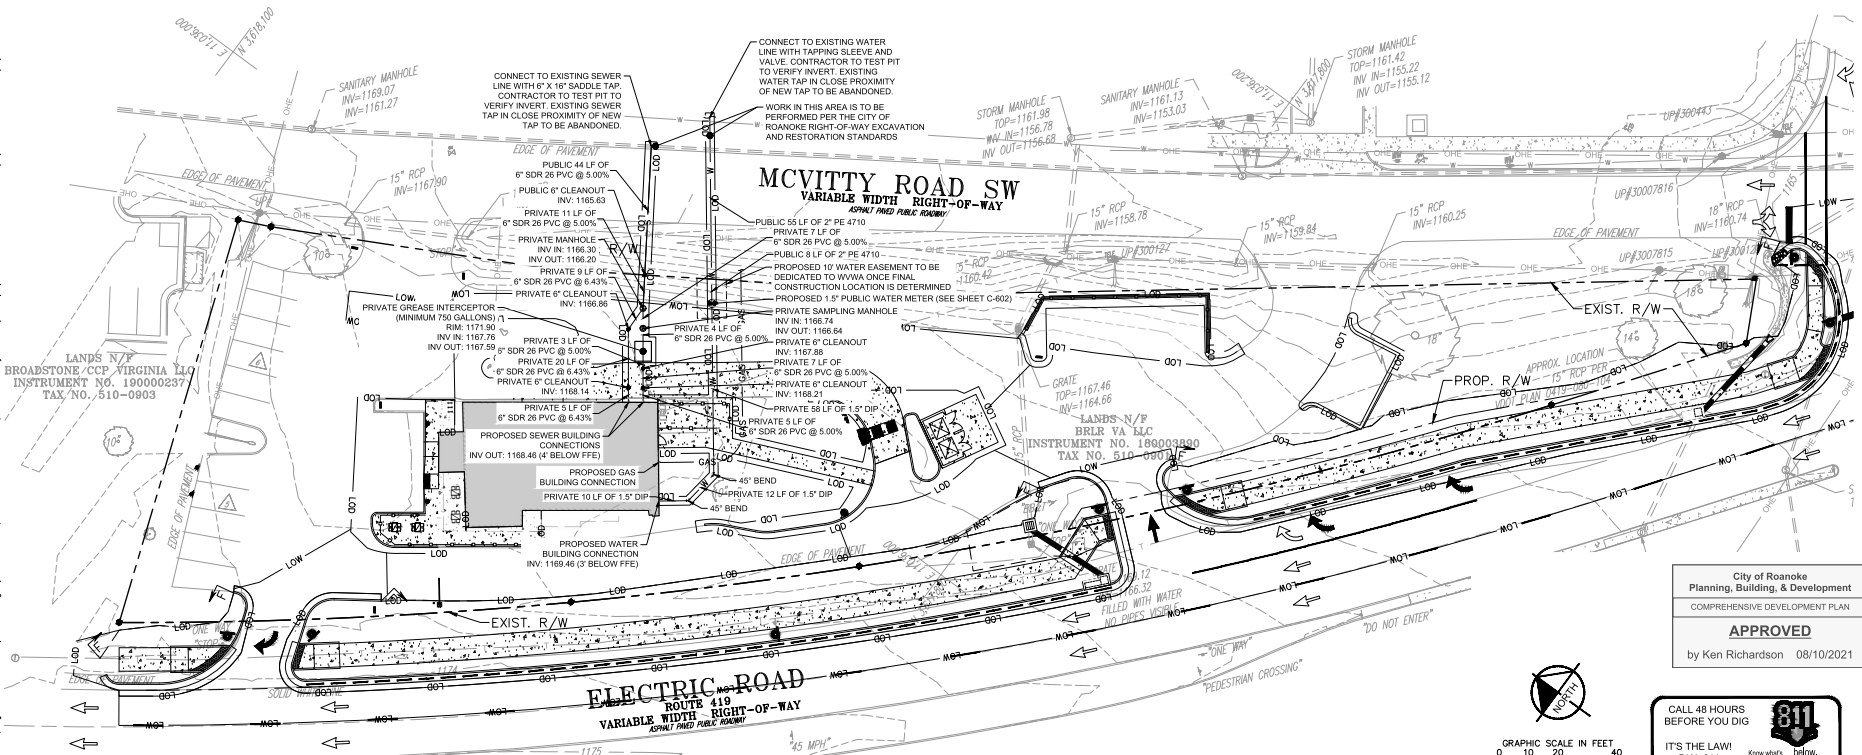 E 11,036,000
N 3,618,100
SANITARY MANHOLE
INV=1169.07
INV=1161.27
CONNECT TO EXISTING SEWER
LINE WITH 6" X 16" SADDLE TAP.
CONTRACTOR TO TEST PIT TO
VERIFY INVERT. EXISTING SEWER
TAP IN CLOSE PROXIMITY OF NEW
TAP TO BE ABANDONED.
CONNECT TO EXISTING WATER
LINE WITH TAPPING SLEEVE AND
VALVE. CONTRACTOR TO TEST PIT
TO VERIFY INVERT. EXISTING
WATER TAP IN CLOSE PROXIMITY
OF NEW TAP TO BE ABANDONED.
WORK IN THIS AREA IS TO BE
PERFORMED PER THE CITY OF
ROANOKE RIGHT-OF-WAY EXCAVATION
AND RESTORATION STANDARDS
STORM MANHOLE
TOP=1161.98
INV IN=1156.78
INV OUT=1156.68
SANITARY MANHOLE
INV=1161.13
INV=1153.03
E 11,036,200
N 3,617,800
STORM MANHOLE
TOP=1161.42
INV IN=1155.22
INV OUT=1155.12
UP#300443
UP#30007816
EDGE OF PAVEMENT
EDGE OF PAVEMENT
15" RCP
INV=1167.90
MCVITTY ROAD SW
VARIABLE WIDTH RIGHT-OF-WAY
ASPHALT PAVED PUBLIC ROADWAY
PUBLIC 44 LF OF
6" SDR 26 PVC @ 5.00%
PUBLIC 6" CLEANOUT
INV: 1165.63
PRIVATE 11 LF OF
6" SDR 26 PVC @ 5.00%
PRIVATE MANHOLE
INV IN: 1166.30
INV OUT: 1166.20
R/W
PRIVATE 9 LF OF
6" SDR 26 PVC @ 6.43%
PRIVATE 6" CLEANOUT
INV: 1166.86
PRIVATE GREASE INTERCEPTOR
(MINIMUM 750 GALLONS)
RIM: 1171.90
INV IN: 1167.76
INV OUT: 1167.59
PRIVATE 3 LF OF
6" SDR 26 PVC @ 5.00%
PRIVATE 20 LF OF
6" SDR 26 PVC @ 6.43%
PRIVATE 6" CLEANOUT
INV: 1168.14
PRIVATE 5 LF OF
6" SDR 26 PVC @ 6.43%
PROPOSED SEWER BUILDING
CONNECTIONS
INV OUT: 1168.46 (4' BELOW FFE)
PROPOSED GAS
BUILDING CONNECTION
PRIVATE 10 LF OF 1.5" DIP
PROPOSED WATER
BUILDING CONNECTION
INV: 1169.46 (3' BELOW FFE)
PUBLIC 55 LF OF 2" PE 4710
PRIVATE 7 LF OF
6" SDR 26 PVC @ 5.00%
PUBLIC 8 LF OF 2" PE 4710
PROPOSED 10' WATER EASEMENT TO BE
DEDICATED TO WVWA ONCE FINAL
CONSTRUCTION LOCATION IS DETERMINED
PROPOSED 1.5" PUBLIC WATER METER (SEE SHEET C-602)
PRIVATE SAMPLING MANHOLE
INV IN: 1166.74
INV OUT: 1166.64
PRIVATE 4 LF OF
6" SDR 26 PVC @ 5.00%
PRIVATE 6" CLEANOUT
INV: 1167.88
PRIVATE 7 LF OF
6" SDR 26 PVC @ 5.00%
PRIVATE 6" CLEANOUT
INV: 1168.21
PRIVATE 58 LF OF 1.5" DIP
PRIVATE 5 LF OF
6" SDR 26 PVC @ 5.00%
GAS
45" BEND
PRIVATE 12 LF OF 1.5" DIP
45" BEND
15" RCP
INV=1158.78
15" RCP
INV=1159.84
15" RCP
INV=1160.25
18" RCP
INV=1160.74
UP#300127
UP#3007815
EDGE OF PAVEMENT
1165
EXIST. R/W
PROP. R/W
APPROX. LOCATION
15" RCP PER
VDOT PLAN 0419-080-104
GRATE
TOP=1167.46
INV=1164.66
15" RCP
LANDS N/F
BRLR VA LLC
INSTRUMENT NO. 180003890
TAX NO. 510-0901
LANDS N/F
BROADSTONE CCP VIRGINIA LLC
INSTRUMENT NO. 190000237
TAX NO. 510-0903
EDGE OF PAVEMENT
EDGE OF PAVEMENT
EXIST. R/W
"ONE WAY"
"STOP"
EDGE OF PAVEMENT
SOLID WHITE LINE
1174
ELECTRIC ROAD
ROUTE 419
VARIABLE WIDTH RIGHT-OF-WAY
ASPHALT PAVED PUBLIC ROADWAY
1175
"45 MPH"
FILLED WITH WATER
NO PIPES VISIBLE
"ONE WAY"
"PEDESTRIAN CROSSING"
"DO NOT ENTER"
City of Roanoke
Planning, Building, & Development
COMPREHENSIVE DEVELOPMENT PLAN
APPROVED
by Ken Richardson 08/10/2021
NORTH
GRAPHIC SCALE IN FEET
0 10 20 40
CALL 48 HOURS
BEFORE YOU DIG
IT'S THE LAW!
811
Know what's below.